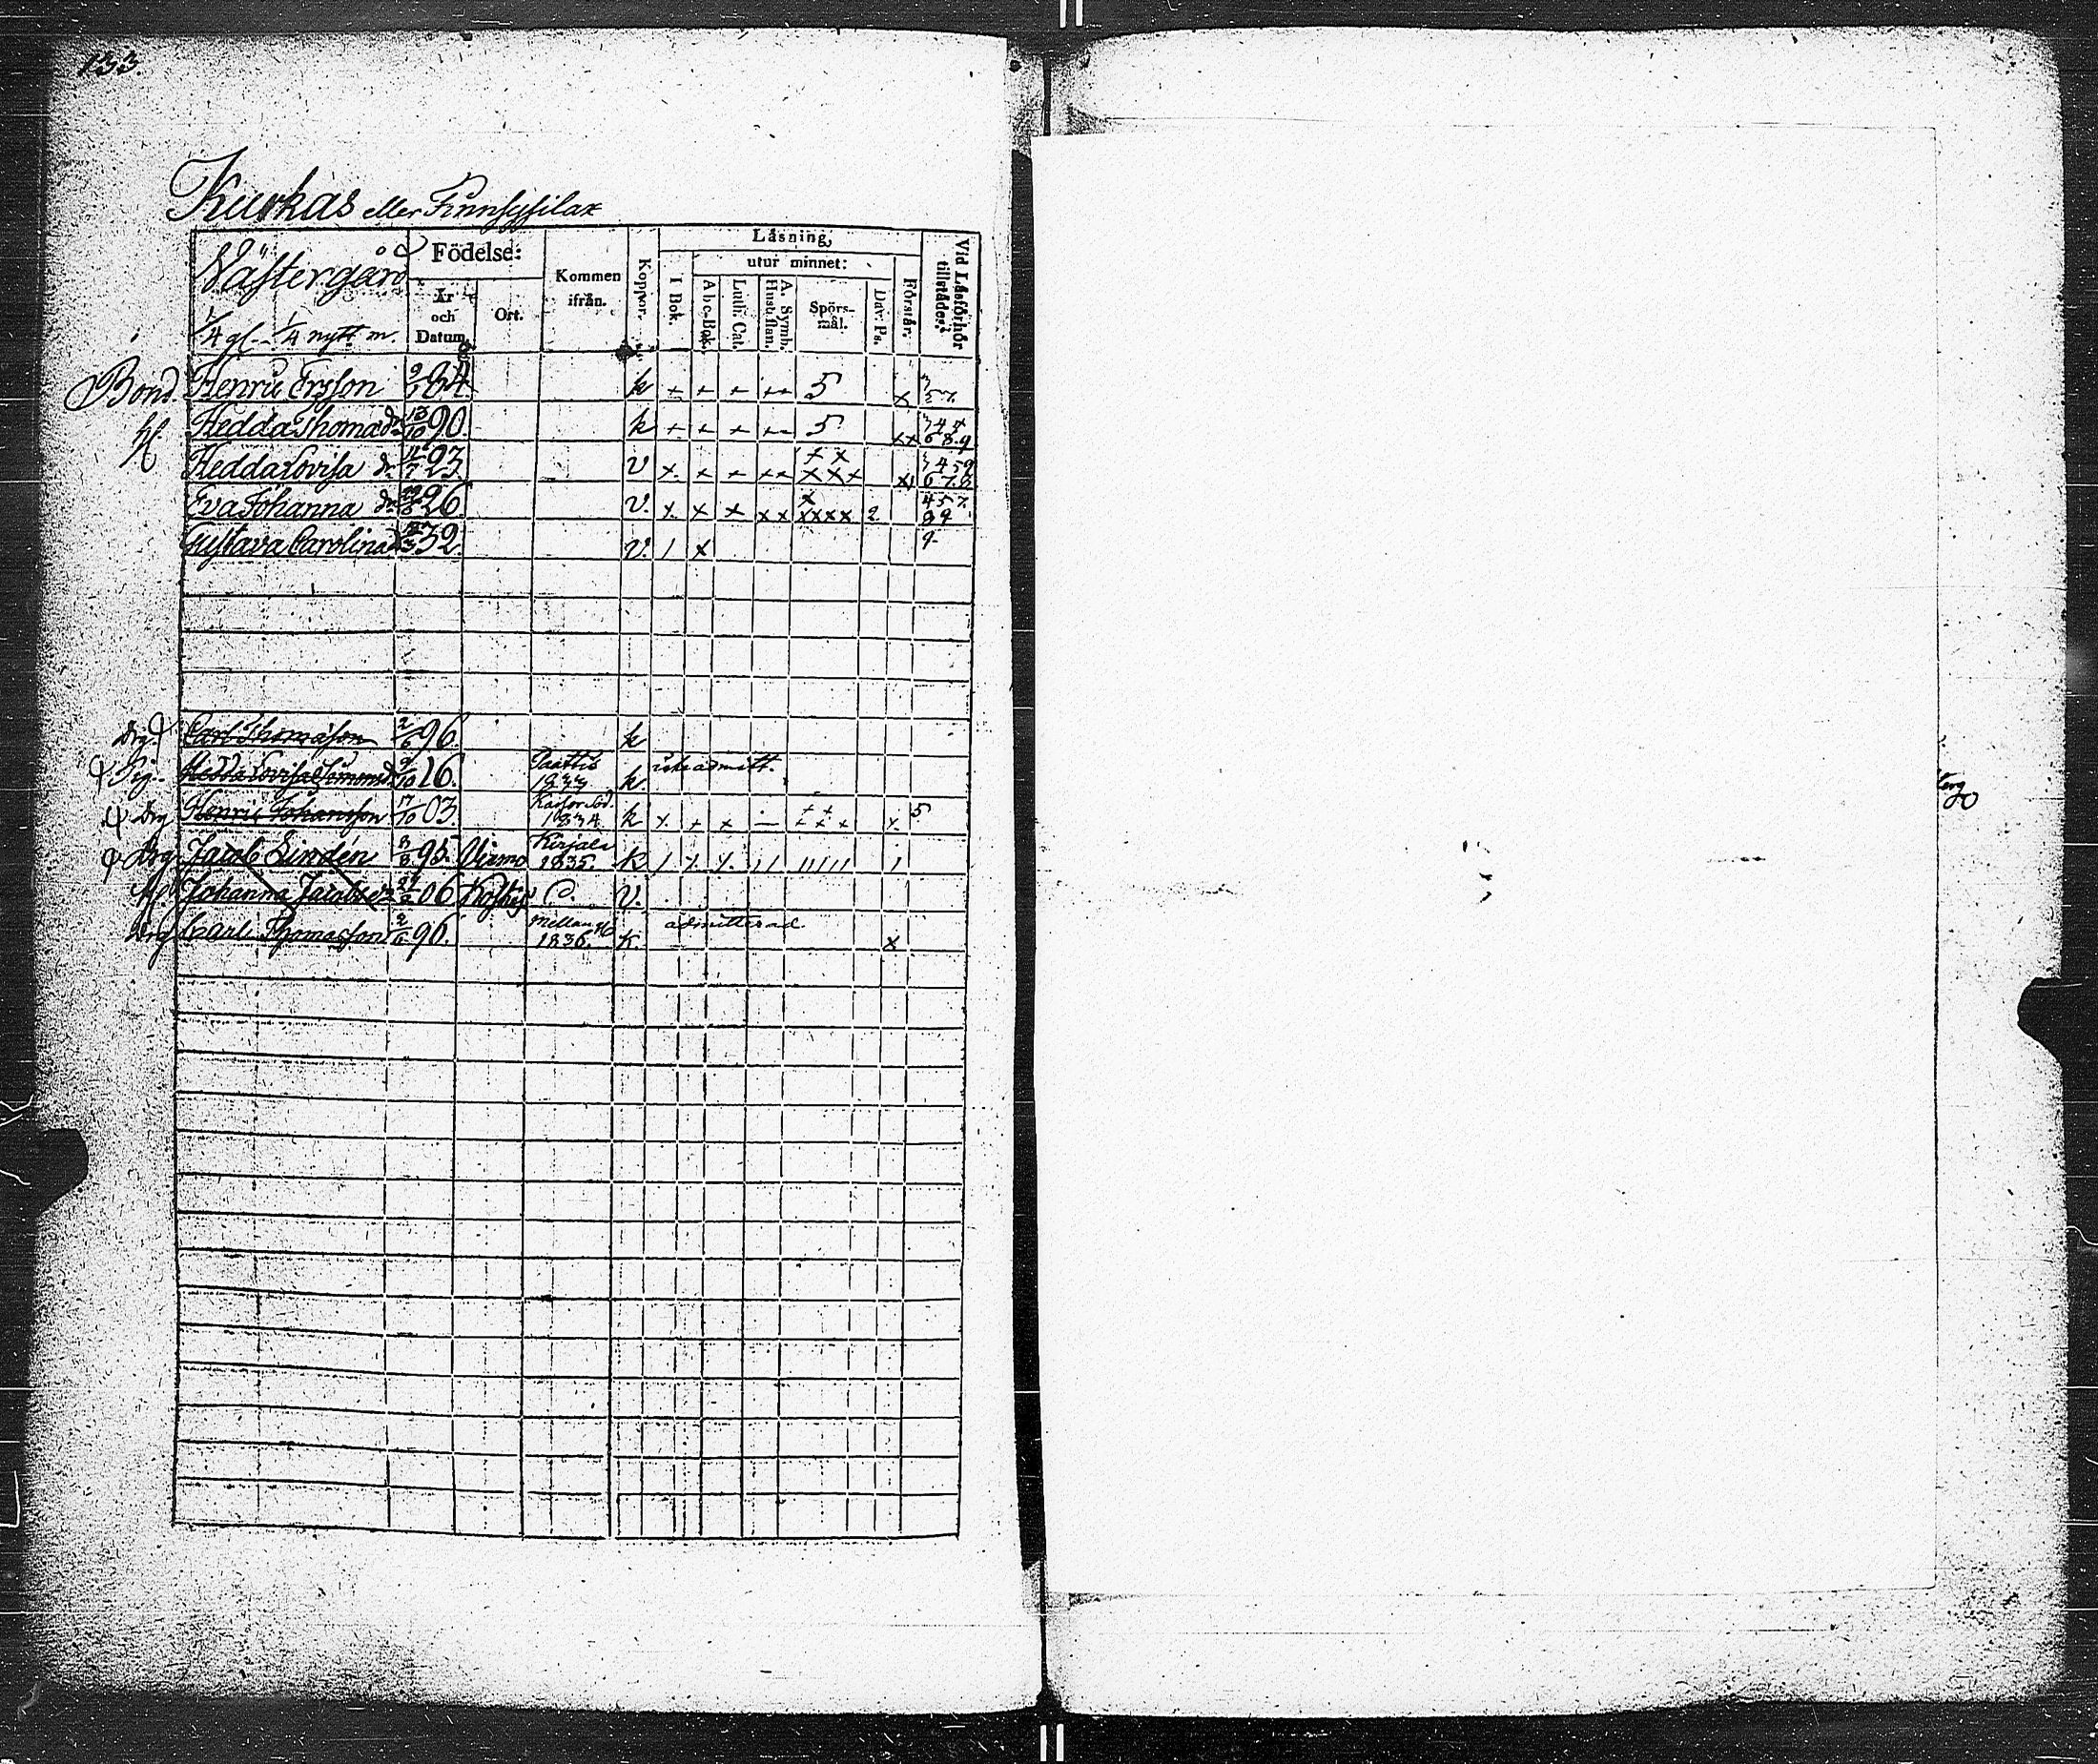 133.
Kurkas eller Finnsysilax
Västergård
1/4 gl. 1/4 nytt m.
Födelse:
År och Datum.
Ort.
Kommen ifrån.
Koppor.
Läsning,
I Bok.
utur minnet:
Abc-Bok.
Luth. Cat.
A. Symb. Hust.flan.
Spörs-mål.
Dav. Ps.
Förstår.
Vid Läsförhör tillstädes.
Bond. Henric Ersson 9/1 84 k + + + ++ 5 x
H. Hedda Thomasdr 13/10 90. k + + + +- 5 ++ 3 4 6 8. 9.
Hedda Lovisa dr 23. v x. + + ++ ++ xxx 3 4 5 9 6 7. 8.
Eva Johanna dr 26 v. x. x x xx x xxxx 2. 4 5 7. 8 9
Gustava Carolina 32. v. 1 x 9.
Drg Carl Thomasson 2/6 96. k
Pig. Hedda Lovisa Simonsd. 9/10 16. Paattis 1833 k. icke admitt.
Drg Henric Johansson 17/10 03. 1834. k x. + x ++ +++ x. 5.
Drg Jacob Lindén 95. Virmo Kirjala 1835. k / x x. // ///// /
H. Johanna Jacobsdr 06 v.
Drg Carl Thomasson 2/6 96. 1836. k. admitterad. x